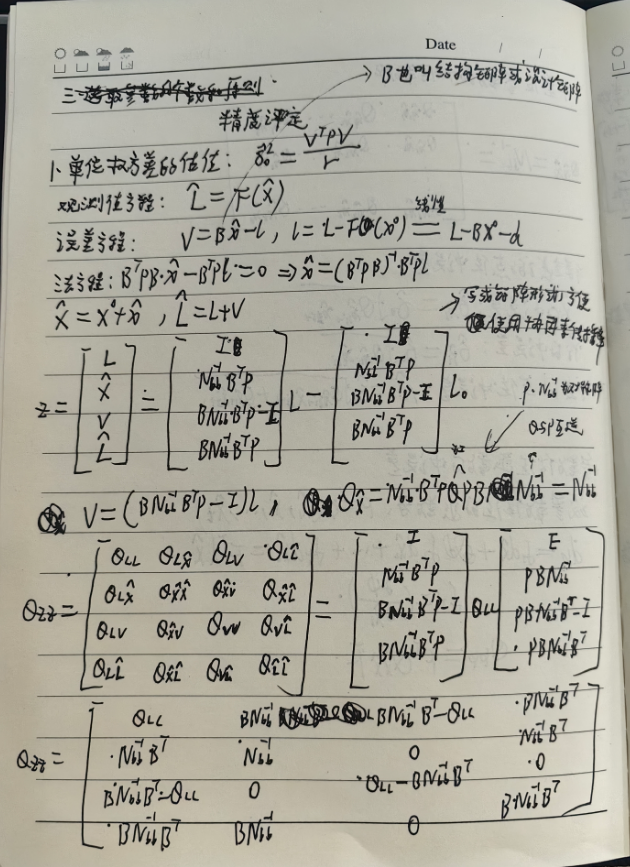 Date
B也叫结构矩阵或设计矩阵
三. 选取参数的个数和原则
精度评定
1. 单位权方差的估值: σ̂₀² = VᵀPV / r
观测值方程: L̂ = F(X̂)
线性
误差方程: V = Bx̂ - l , l = L - F(X⁰) = L - BX⁰ - d
法方程: BᵀPB·x̂ - BᵀPl = 0 ⇒ x̂ = (BᵀPB)⁻¹·BᵀPl
X̂ = X⁰ + x̂ , L̂ = L + V
写成矩阵形式, 方便
使用协因素传播率
Z = [L X̂ V L̂] = [I N_bb⁻¹BᵀP BN_bb⁻¹BᵀP-I BN_bb⁻¹BᵀP] L - [I N_bb⁻¹BᵀP BN_bb⁻¹BᵀP-I BN_bb⁻¹BᵀP] L₀
P·N_bb⁻¹
Q与P互逆
V = (BN_bb⁻¹BᵀP - I)l , Q_X̂ = N_bb⁻¹·BᵀPQPBN_bb⁻¹ = N_bb⁻¹
Q_ZZ = [Q_LL Q_LX̂ Q_LV Q_LL̂
Q_LX̂ Q_X̂X̂ Q_X̂V Q_X̂L̂
Q_LV Q_X̂V Q_VV Q_VL̂
Q_LL̂ Q_X̂L̂ Q_VL̂ Q_L̂L̂] = [I N_bb⁻¹BᵀP BN_bb⁻¹BᵀP-I BN_bb⁻¹BᵀP] Q_LL [E PBN_bb⁻¹ PBN_bb⁻¹Bᵀ-I PBN_bb⁻¹Bᵀ]
Q_ZZ = [Q_LL BN_bb⁻¹ BN_bb⁻¹Bᵀ-Q_LL BN_bb⁻¹Bᵀ
N_bb⁻¹Bᵀ N_bb⁻¹ 0 N_bb⁻¹Bᵀ
BN_bb⁻¹Bᵀ-Q_LL 0 Q_LL-BN_bb⁻¹Bᵀ 0
BN_bb⁻¹Bᵀ BN_bb⁻¹ 0 BN_bb⁻¹Bᵀ]